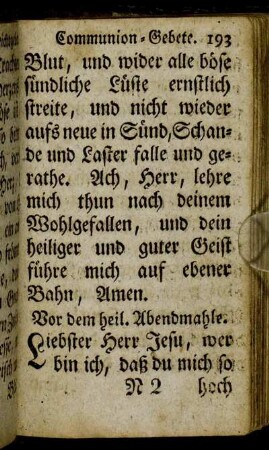 Communion-Gebete. 193
Blut, und wider alle böse
sündliche Lüste ernstlich
streite, und nicht wieder
aufs neue in Sünd, Schan-
de und Laster falle und ge-
rathe. Ach, Herr, lehre
mich thun nach deinem
Wohlgefallen, und dein
heiliger und guter Geist
führe mich auf ebener
Bahn, Amen.
Vor dem heil. Abendmahle.
Liebster Herr Jesu, wer
bin ich, daß du mich so
N 2 hoch